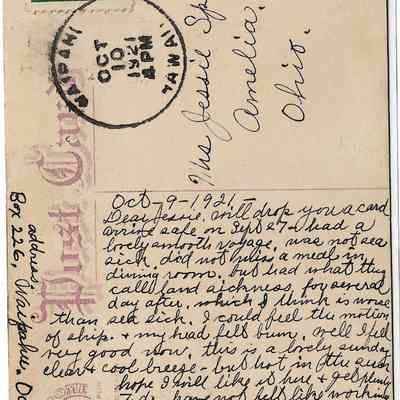 WAIPAHU
OCT
10
1921
4 PM
HAWAII.
Mrs Jessie Sp
Amelia.
Ohio.
Post Card
address
Box 226, Waipahu. Oa
Oct-9-1921-
Dear Jessie. will drop you a card
arrive safe on Sept 27- had a
lovely smooth voyage. was not sea
sick, did not miss a meal in
dining room. but had what they
call land sickness, for several
day after, which I think is worse
than sea sick. I could feel the motion
of ship. + my head felt bum. well I feel
very good now. this is a lovely sunday
clear + cool breeze - but hot in the sun
hope I will like it here + get plenty
to do. have not felt like working